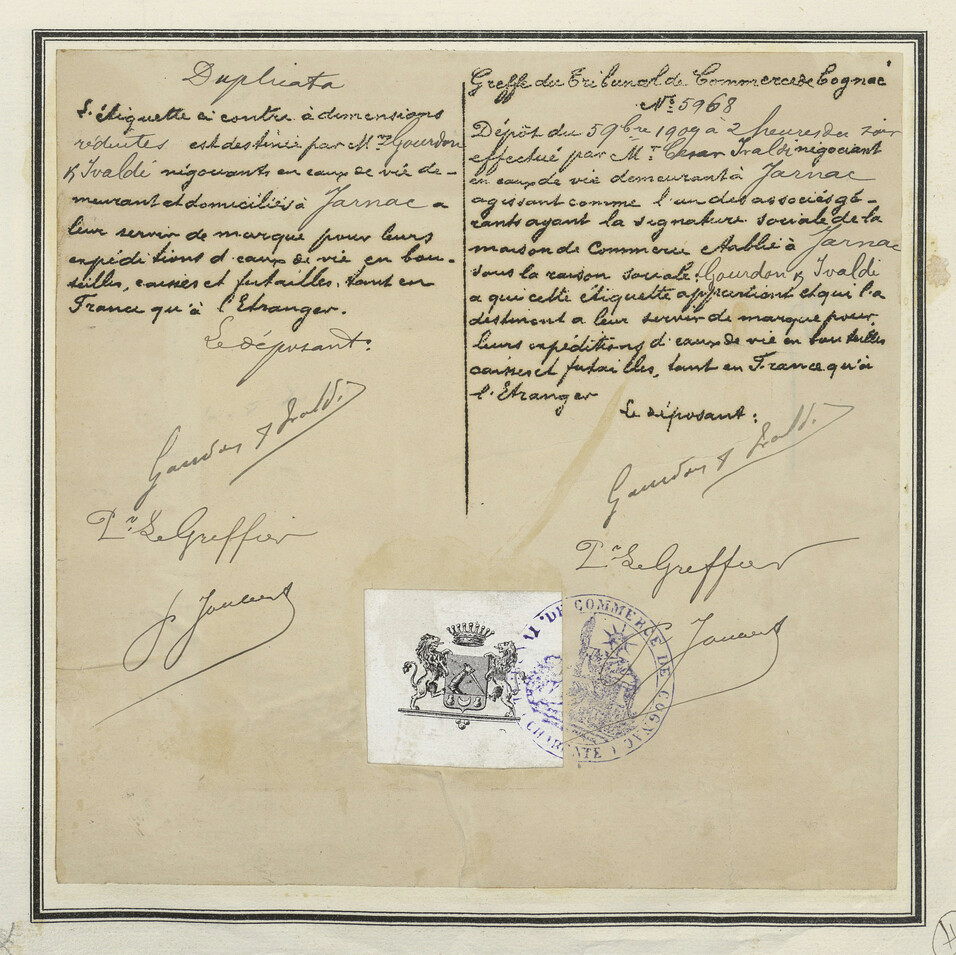 Duplicata
L'étiquette ci contre à dimensions
réduites est destinée par Mrs Gourdon
& Ivaldi négociants en eaux de vie de-
meurant et domiciliés à Jarnac a
leur servir de marque pour leurs
expéditions d'eaux de vie en bou-
teilles, caisses et futailles, tant en
France qu'à l'Etranger.
Le déposant:
Gourdon & Ivaldi
Pr Le Greffier
Greffe du Tribunal de Commerce de Cognac
No 5968
Dépôt du 5 9bre 1909 à 2 heures du soir
effectué par Mr Cesar Ivaldi négociant
en eaux de vie demeurant à Jarnac
agissant comme l'un des associés gé-
rants ayant la signature sociale de la
maison de Commerce etablie à Jarnac
sous la raison sociale: Gourdon & Ivaldi
a qui cette étiquette appartient et qui l'a
destinent a leur servir de marque pour
leurs expéditions d'eaux de vie en bouteilles
caisses et futailles, tant en France qu'à
l'Etranger
Le déposant:
Gourdon & Ivaldi
Pr Le Greffier
AL DE COMMERCE DE COGNAC
CHARENTE